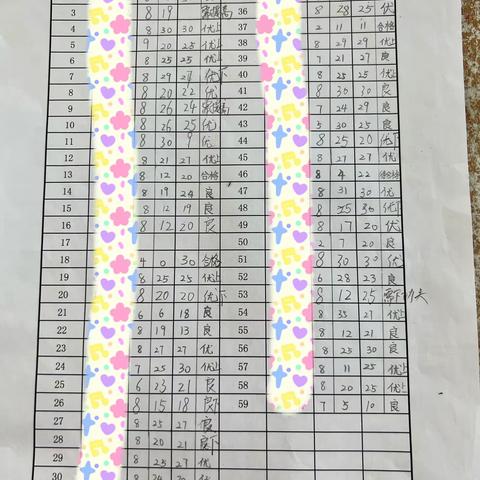 3 8 19 36 8 28 25 优
4 8 30 30 优上 37 2 11 11 合格
5 9 20 25 优上 38 8 29 29 优上
6 8 25 25 优 39 7 21 27 良
7 8 29 27 优下 40 8 25 25 优上
8 8 20 22 优 41 8 30 30 良
9 8 26 24 42 7 24 29 良
10 8 26 25 优 43 5 30 25 良
11 8 30 9 优 44 8 25 20 优下
12 8 21 27 优上 45 8 27 27 优
13 8 12 20 合格 46 8 4 22
14 8 19 24 良 47 8 31 30 优
15 8 12 19 良 48 8 25 30 优下
16 8 12 20 良 49 8 17 20 优
17 50 2 7 20 良
18 4 0 30 合格 51 8 30 30 优
19 8 25 25 优上 52 6 28 23 良
20 8 20 20 优下 53 8 12 25
21 6 6 18 良 54 8 35 27 优上
22 8 19 13 良 55 8 12 21 良
23 8 27 27 优 56 8 25 30 良
24 7 25 30 优上 57 8 11 25 优上
25 6 23 21 良 58 8 20 25 优上
26 8 15 18 良下 59 7 5 10 良
27 8 25 27 良
28 8 20 21 良下
29 8 25 27 优
30 8